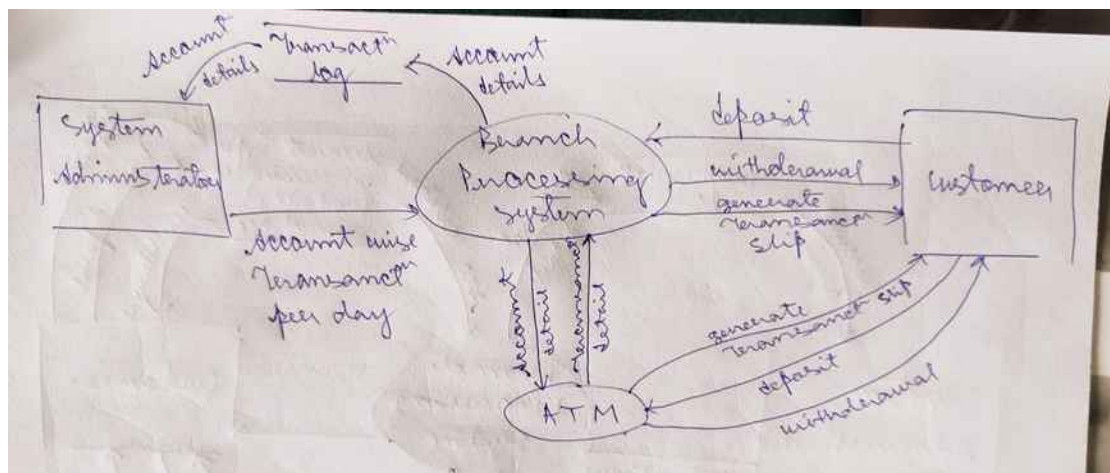 Account
details
Transactn
log
Account
details
System
Administerator
Branch
Processing
System
deposit
withderawal
generate
Transanctn
slip
customer
Account wise
Transanctn
per day
Account
detail
detail
generate
Transanctn slip
deposit
withderawal
ATM